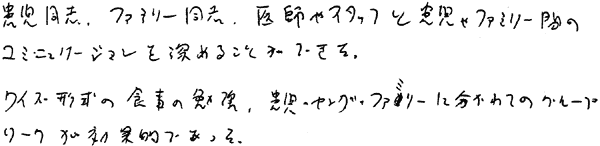 患児同志、ファミリー同志、医師やスタッフと患児やファミリー間の
コミニュケーションを深めることができた。
クイズ形式の食事の勉強、患児・ヤング・ファミリーに分かれてのグループ
ワークが効果的であった。